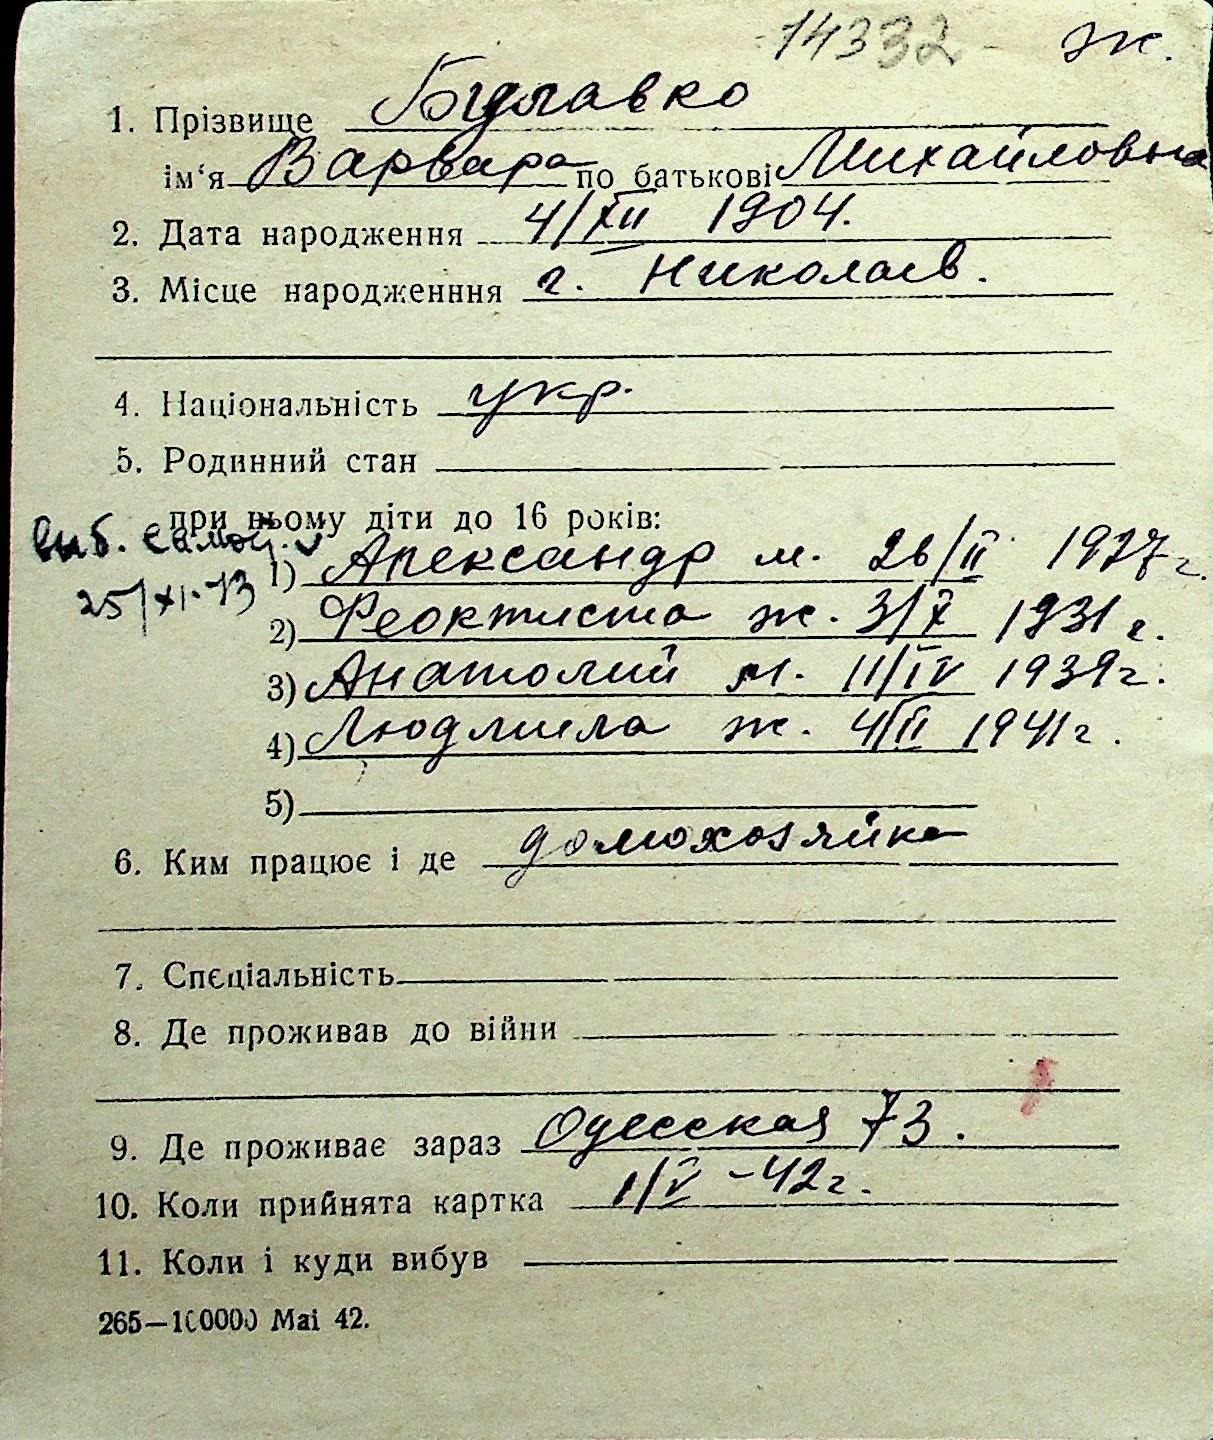 14332 ж.
1. Прізвище Булавко
ім‘я Варвара по батькові Михайловна
2. Дата народження 4/XII 1904.
3. Місце народженння г. Николаев.
4. Національність укр.
5. Родинний стан
при ньому діти до 16 років:
выб. самост. v
25/XI-43
1) Александр м. 26/II 1927г.
2) Феоктиста ж. 3/X 1931г.
3) Анатолий м. 11/IV 1939г.
4) Людмила ж. 4/II 1941г.
5)
6. Ким працює і де домохозяйка
7. Спєціальність
8. Де проживав до війни
9. Де проживає зараз Одесская 73.
10. Коли прийнята картка 1/V-42г.
11. Коли і куди вибув
265—100000 Mai 42.